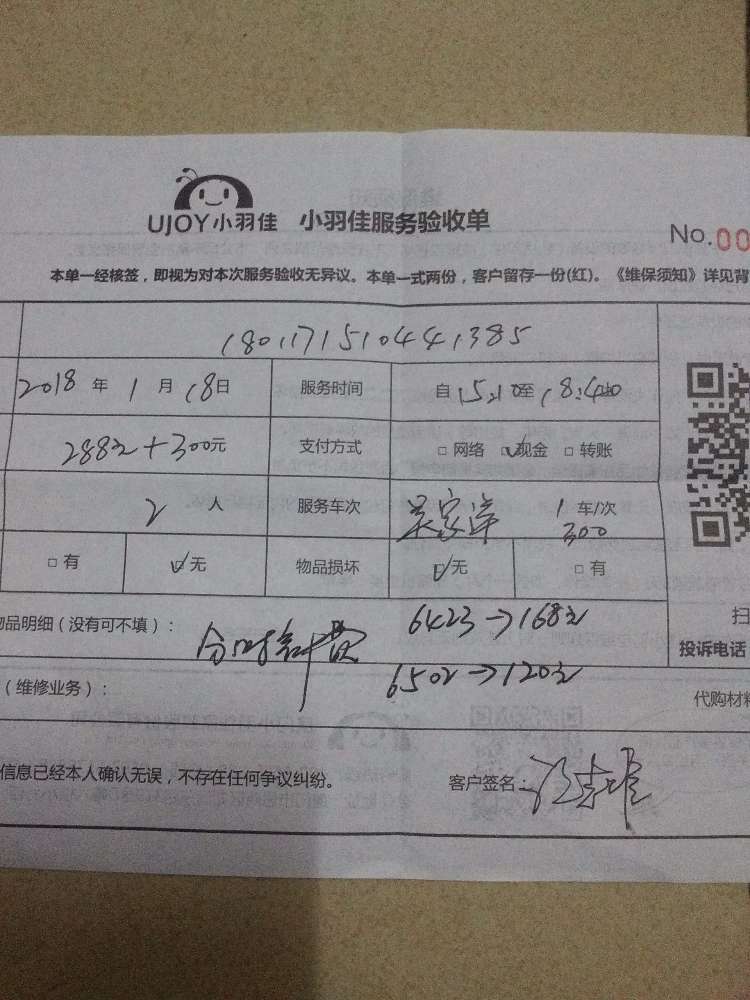 UJOY小羽佳 小羽佳服务验收单
No.00
本单一经核签，即视为对本次服务验收无异议。本单一式两份，客户留存一份(红)。《维保须知》详见背
1801171510441385
2018年1月18日 服务时间 自15:10至18:40
288元+300元 支付方式 □网络 ☑现金 □转账
2人 服务车次 吴家岸 1车/次
300
□有 ☑无 物品损坏 ☑无 □有
品明细（没有可不填）： 分时计费 6423→168元
6502→120元
扫
投诉电话
（维修业务）： 代购材料
信息已经本人确认无误，不存在任何争议纠纷。 客户签名：